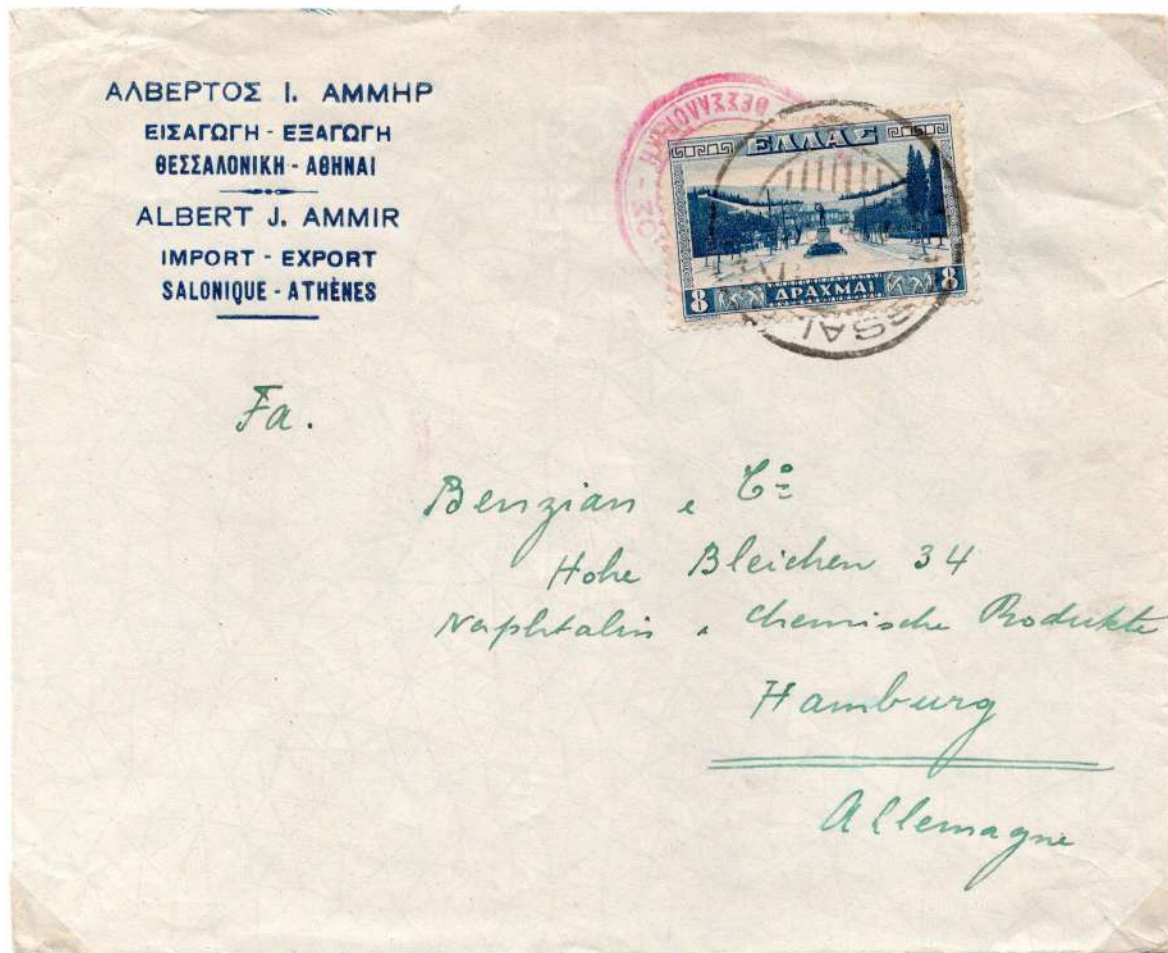 ΑΛΒΕΡΤΟΣ Ι. ΑΜΜΗΡ
ΕΙΣΑΓΩΓΗ - ΕΞΑΓΩΓΗ
ΘΕΣΣΑΛΟΝΙΚΗ - ΑΘΗΝΑΙ
ALBERT J. AMMIR
IMPORT - EXPORT
SALONIQUE - ATHÈNES
ΘΕΣΣΑΛΟΝΙΚΗ
ΕΛΛΑΣ
8 ΔΡΑΧΜΑΙ 8
Fa.
Benzian & Cº
Hohe Bleichen 34
Naphtalin & Chemische Produkte
Hamburg
Allemagne